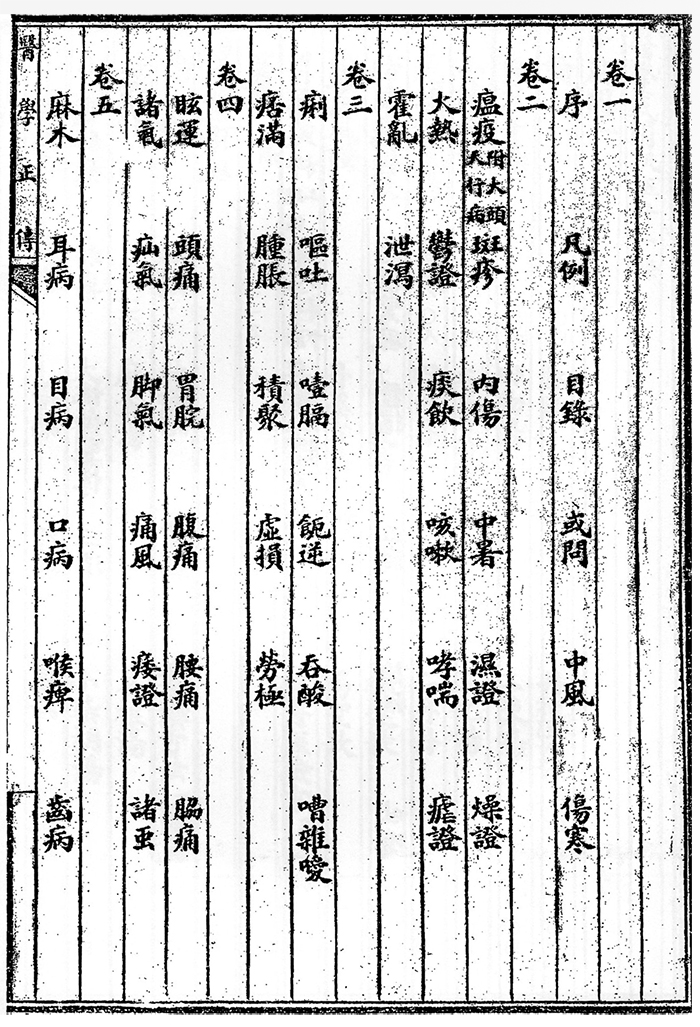 卷一
序 凡例 目錄 或問 中風 傷寒
卷二
瘟疫 附大頭天行病 斑疹 內傷 中暑 濕證 燥證
火熱 鬱證 痰飲 咳嗽 哮喘 瘧證
霍亂 泄瀉
卷三
痢 嘔吐 噎膈 䭇逆 吞酸 嘈雜噯
痞滿 腫脹 積聚 虛損 勞極
卷四
眩運 頭痛 胃脘 腹痛 腰痛 脇痛
諸氣 疝氣 脚氣 痛風 痿證 諸虫
卷五
麻木 耳病 目病 口病 喉痺 齒病
醫學正傳